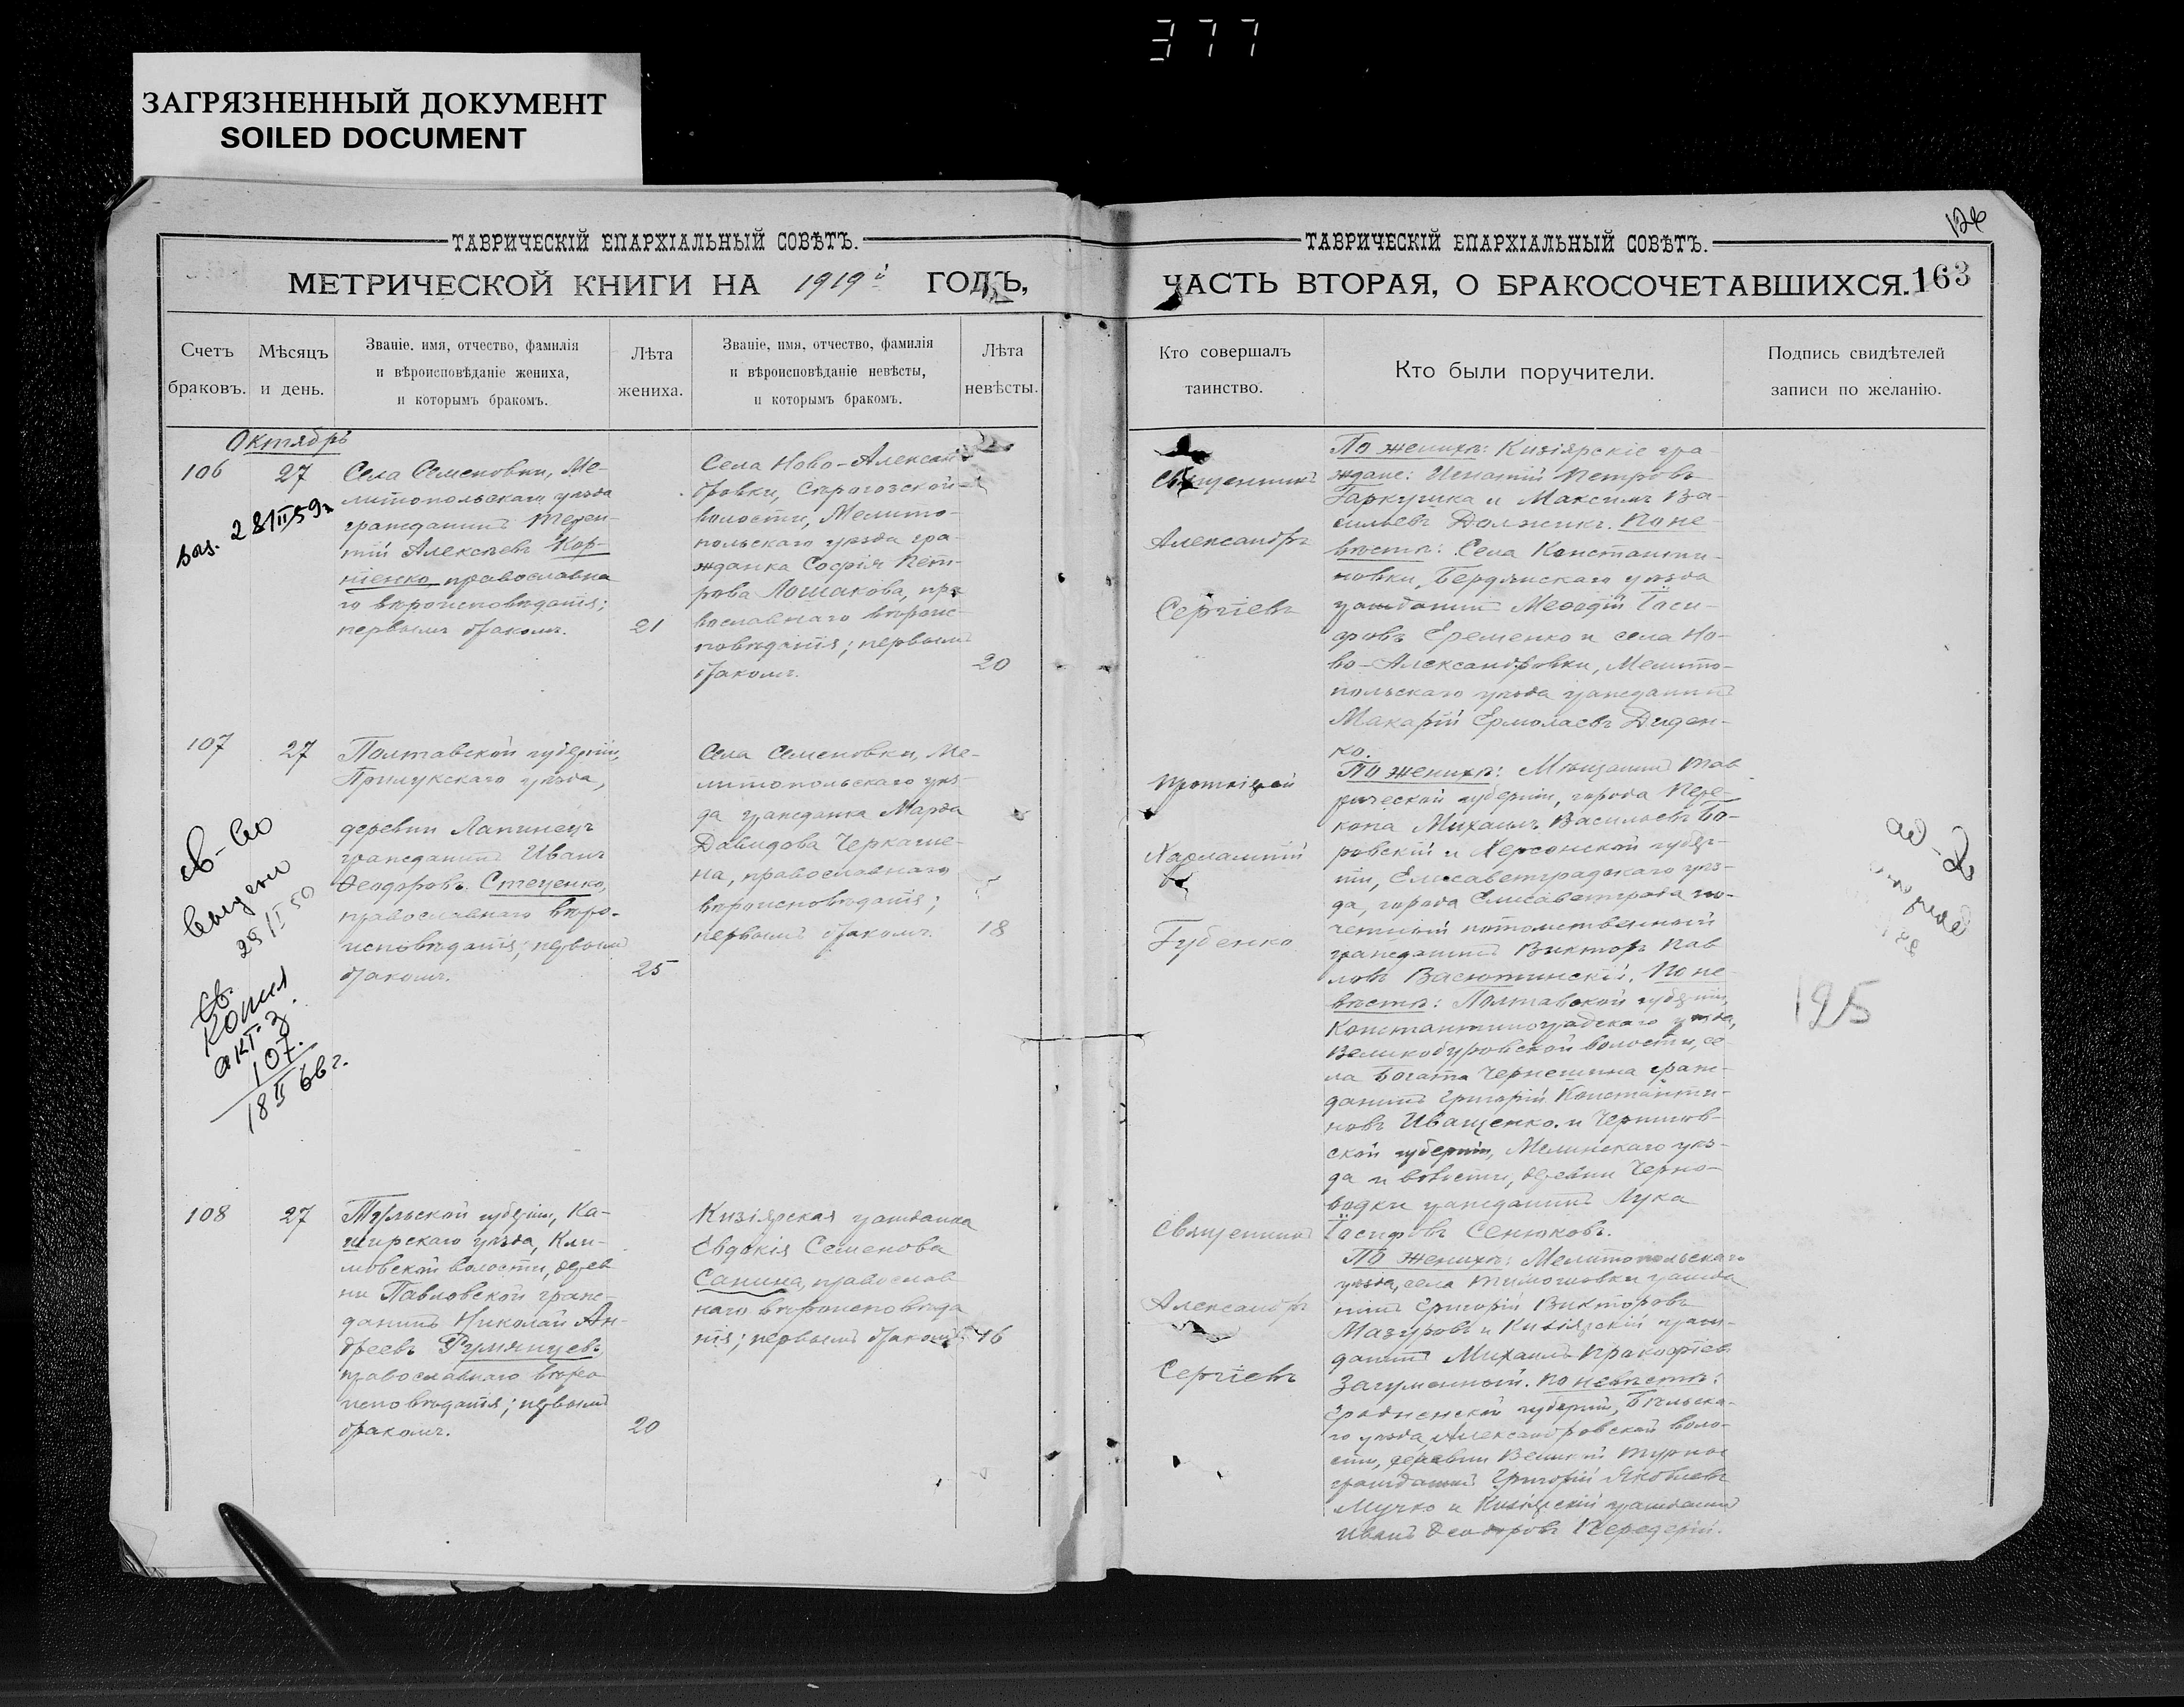 377
ЗАГРЯЗНЕННЫЙ ДОКУМЕНТ
SOILED DOCUMENT
ТАВРИЧЕСКІЙ ЕПАРХІАЛЬНЫЙ СОВѢТЪ.
МЕТРИЧЕСКОЙ КНИГИ НА 1919й ГОДЪ,
Счетъ браковъ.
Мѣсяцъ и день.
Званіе, имя, отчество, фамилія
и вѣроисповѣданіе жениха,
и которымъ бракомъ.
Лѣта жениха.
Званіе, имя, отчество, фамилія
и вѣроисповѣданіе невѣсты,
и которымъ бракомъ.
Лѣта невѣсты.
Октябрь
106
27
28/II 59г
Села Семеновки, Ме-
литопольскаго уѣзда
гражданинъ Терен-
тій Алексѣевъ Кор-
ніенко православна
го вѣроисповѣданія;
первымъ бракомъ.
21
Села Ново-Алексан
дровки, Сѣрогозской
волости, Мелито-
польскаго уѣзда гра-
жданка Софія Пет-
рова Лошакова, пра
вославнаго вѣроис
повѣданія; первымъ
бракомъ.
20
107
27
св-во
выдано
25/II 50
Св.
копия
акт. з
107.
18 II 66 г.
Полтавской губерніи,
Прилукскаго уѣзда,
деревни Лапинецъ
гражданинъ Иванъ
Ѳеодоровъ Стеценко,
православнаго вѣро-
исповѣданія; первымъ
бракомъ.
25
Села Семеновки, Ме-
литопольскаго уѣз-
да гражданка Марѳа
Давидова Черкаше-
на, православнаго
вѣроисповѣданія;
первымъ бракомъ.
18
108
27
Тульской губерніи, Ка-
ширскаго уѣзда, Кли-
мовской волости, дерев
ни Павловской граж-
данинъ Николай Ан-
дреевъ Румянцевъ,
православнаго вѣро
исповѣданія; первымъ
бракомъ.
20
Кизіярская гражданка
Евдокія Семенова
Санина, православ
наго вѣроисповѣда
нія; первымъ бракомъ.
16
126
ТАВРИЧЕСКІЙ ЕПАРХІАЛЬНЫЙ СОВѢТЪ.
ЧАСТЬ ВТОРАЯ, О БРАКОСОЧЕТАВШИХСЯ.
163
Кто совершалъ
таинство.
Кто были поручители.
Подпись свидѣтелей
записи по желанію.
Священникъ
Александръ
Сергіевъ
По женихѣ: Кизіярскіе гра-
ждане: Игнатій Петровъ
Гаркушка и Максимъ Ва-
сильевъ Должикъ. По не-
вѣстѣ: Села Константи-
новки, Бердянскаго уѣзда
гражданинъ Меѳодій Іоси-
фовъ Еременко и села Но-
во-Александровки, Мелито-
польскаго уѣзда гражданинъ
Макарій Ермолаевъ Диден-
ко.
Протоіерей
Харлампій
Губенко
По женихѣ: Мѣщанинъ Тав
рической губерніи, города Пере-
копа Михаилъ Васильевъ Бо-
ровскій и Херсонской губер-
ніи, Елисаветградскаго уѣз-
да, города Елисаветграда по-
четный потомственный
гражданинъ Викторъ Пав
ловъ Васютинскій. По не-
вѣстѣ: Полтавской губерніи,
Константиноградскаго уѣзда,
Великобуровской волости, се
ла Богата Чернещина граж-
данинъ Григорій Константи-
новъ Иващенко и Чернигов-
ской губерніи, Мглинскаго уѣз-
да и волости, деревни Черно-
водки гражданинъ Лука
Іосифовъ Сенюковъ.
125
Священникъ
Александръ
Сергіевъ
По женихѣ: Мелитопольскаго
уѣзда, села Тимошовки гражда
нинъ Григорій Викторовъ
Мазуровъ и Кизіярскій граж-
данинъ Михаилъ Прокофіевъ
Загуменный. По невѣстѣ:
Гродненской губерніи, Бѣльска-
го уѣзда, Александровской воло-
сти, деревни Великій Турнос
гражданинъ Григорій Яковлевъ
Мучко и Кизіярскій гражданинъ
Иванъ Ѳеодоровъ Передерій.